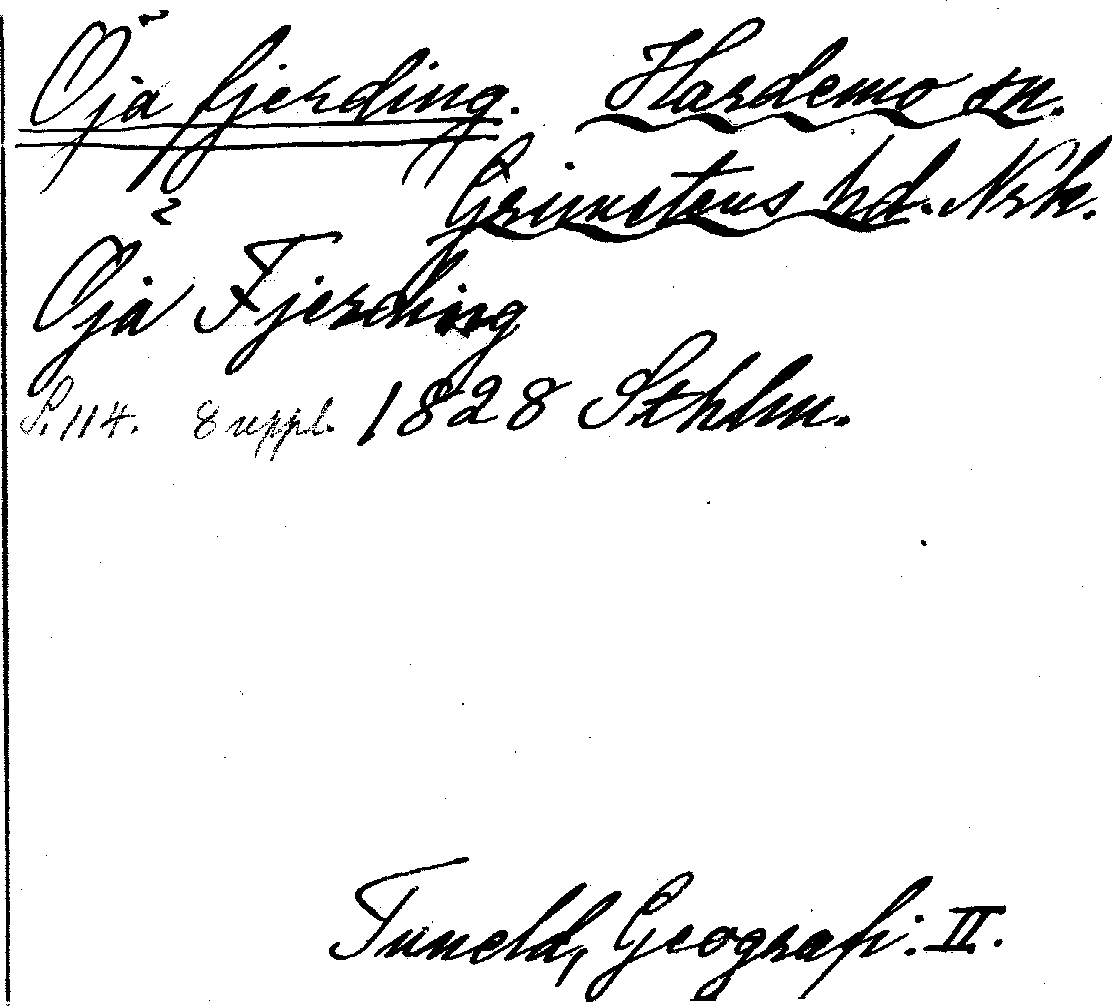 Öja fjerding. Hardemo sn.
Grimstens hd. Nrk.
Öja Fjerding
S. 114. 8 uppl. 1828 Sthlm.
Tuneld, Geografi: II.